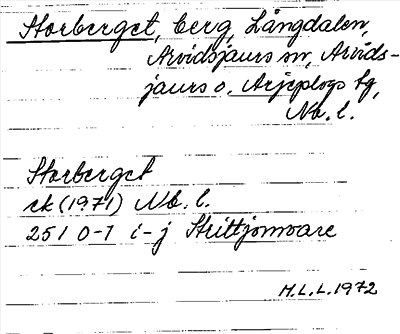 Storberget, berg, Långdalen,
Arvidsjaurs sn, Arvids-
jaurs o. Arjeplogs tg,
Nb. l.
Storberget
ek (1971) Nb. l.
25 I 0-1 i-j Strittjomvare
H.L.L. 1972